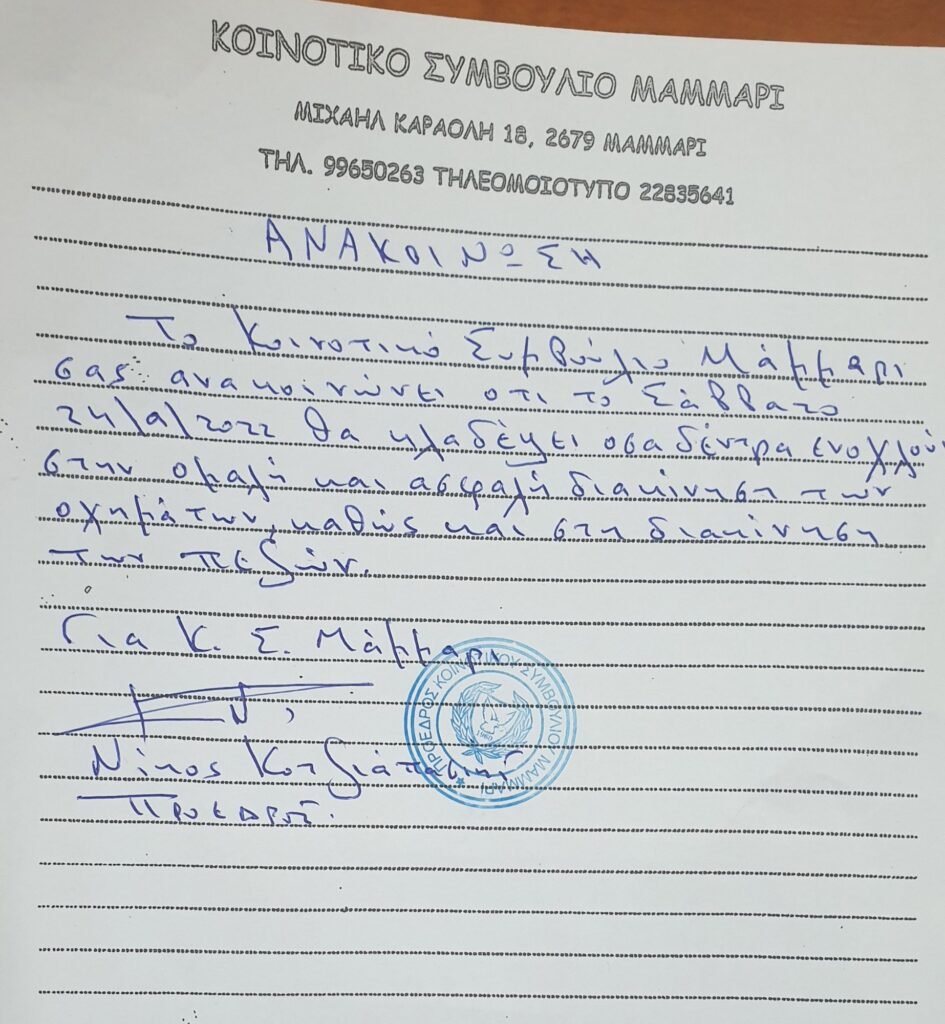 ΚΟΙΝΟΤΙΚΟ ΣΥΜΒΟΥΛΙΟ ΜΑΜΜΑΡΙ
ΜΙΧΑΗΛ ΚΑΡΑΟΛΗ 18, 2679 ΜΑΜΜΑΡΙ
ΤΗΛ. 99650263 ΤΗΛΕΟΜΟΙΟΤΥΠΟ 22835641
ΑΝΑΚΟΙΝΩΣΗ
Το Κοινοτικό Συμβούλιο Μάμμαρι
σας ανακοινώνει οτι το Σάββατο
24/9/2022 θα κλαδέψει οσα δέντρα ενοχλούν
στην ομαλή και ασφαλή διακίνηση των
οχημάτων, καθώς και στη διακίνηση
των πεζών.
Για Κ. Σ. Μάμμαρι
ΠΡΟΕΔΡΟΣ ΚΟΙΝΟΤΙΚΟΥ ΣΥΜΒΟΥΛΙΟΥ ΜΑΜΜΑΡΙ
1960
Νίκος
Πρόεδρος.